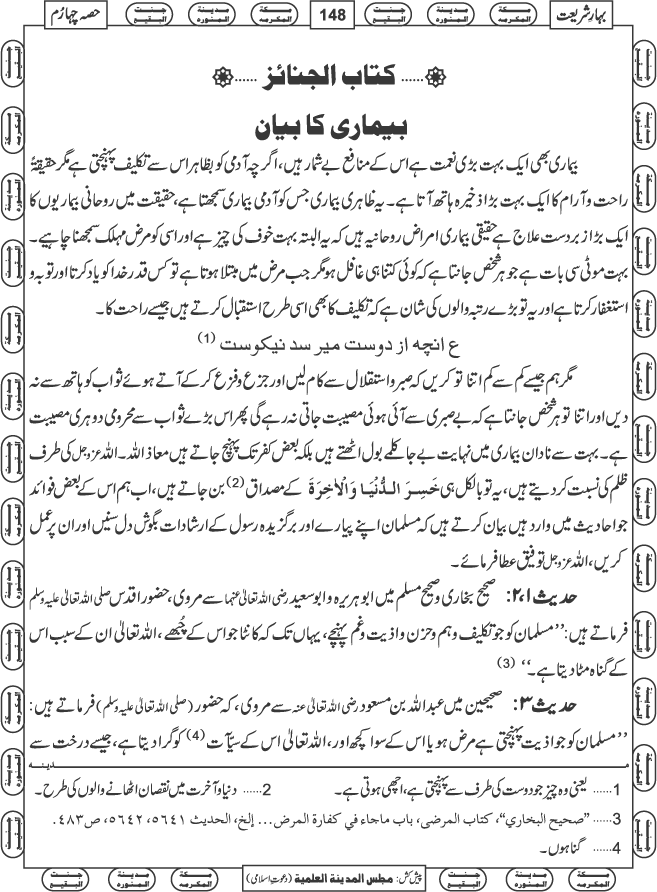 بہارِشریعت
مـكـة المكرمه
مـدينة المنوره
جنت البقيع
148
مـكـة المكرمه
مـدينة المنوره
جنت البقيع
حصہ چہارُم
...... کتاب الجنائز ......
بیماری کا بیان
بیماری بھی ایک بہت بڑی نعمت ہے اس کے منافع بے شمار ہیں، اگرچہ آدمی کو بظاہر اس سے تکلیف پہنچتی ہے مگر حقیقۃً
راحت و آرام کا ایک بہت بڑا ذخیرہ ہاتھ آتا ہے۔ یہ ظاہری بیماری جس کو آدمی بیماری سمجھتا ہے، حقیقت میں روحانی بیماریوں کا
ایک بڑا زبردست علاج ہے حقیقی بیماری امراض روحانیہ ہیں کہ یہ البتہ بہت خوف کی چیز ہے اور اسی کو مرض مہلک سمجھنا چاہیے۔
بہت موٹی سی بات ہے جو ہر شخص جانتا ہے کہ کوئی کتنا ہی غافل ہو مگر جب مرض میں مبتلا ہوتا ہے تو کس قدر خدا کو یاد کرتا اور توبہ و
استغفار کرتا ہے اور یہ تو بڑے رتبہ والوں کی شان ہے کہ تکلیف کا بھی اسی طرح استقبال کرتے ہیں جیسے راحت کا۔
ع انچه از دوست میر سد نیکوست (1)
مگر ہم جیسے کم سے کم اتنا تو کریں کہ صبر و استقلال سے کام لیں اور جزع و فزع کرکے آتے ہوئے ثواب کو ہاتھ سے نہ
دیں اور اتنا تو ہر شخص جانتا ہے کہ بے صبری سے آئی ہوئی مصیبت جاتی نہ رہے گی پھر اس بڑے ثواب سے محرومی دوہری مصیبت
ہے۔ بہت سے نادان بیماری میں نہایت بے جا کلمے بول اٹھتے ہیں بلکہ بعض کفر تک پہنچ جاتے ہیں معاذ اللہ۔ اللہ عزوجل کی طرف
ظلم کی نسبت کر دیتے ہیں، یہ تو بالکل ہی خَسِرَ الدُّنْیَا وَالْاٰخِرَۃَ کے مصداق (2) بن جاتے ہیں، اب ہم اس کے بعض فوائد
جو احادیث میں وارد ہیں بیان کرتے ہیں کہ مسلمان اپنے پیارے اور برگزیدہ رسول کے ارشادات بگوش دل سنیں اور ان پر عمل
کریں، اللہ عزوجل توفیق عطا فرمائے۔
حدیث ۱،۲: صحیح بخاری و صحیح مسلم میں ابوہریرہ و ابوسعید رضی اللہ تعالیٰ عنہما سے مروی، حضور اقدس صلی اللہ تعالیٰ علیہ وسلم
فرماتے ہیں: ’’مسلمان کو جو تکلیف و ہم و حزن و اذیت و غم پہنچے، یہاں تک کہ کانٹا جو اس کے چُبھے، اللہ تعالیٰ ان کے سبب اس
کے گناہ مٹا دیتا ہے۔‘‘ (3)
حدیث ۳: صحیحین میں عبداللہ بن مسعود رضی اللہ تعالیٰ عنہ سے مروی، کہ حضور (صلی اللہ تعالیٰ علیہ وسلم) فرماتے ہیں:
’’مسلمان کو جو اذیت پہنچتی ہے مرض ہو یا اس کے سوا کچھ اور، اللہ تعالیٰ اس کے سیّاٰت (4) کو گرا دیتا ہے، جیسے درخت سے
مدینہ
1...... یعنی وہ چیز جو دوست کی طرف سے پہنچتی ہے، اچھی ہوتی ہے۔ 2...... دنیا و آخرت میں نقصان اٹھانے والوں کی طرح۔
3...... ’’صحيح البخاري‘‘، كتاب المرضى، باب ماجاء في كفارة المرض... إلخ، الحديث ٥٦٤١، ٥٦٤٢، ص٤٨٣.
4...... گناہوں۔
پیش کش: مجلس المدينة العلمية (دعوتِ اسلامی)